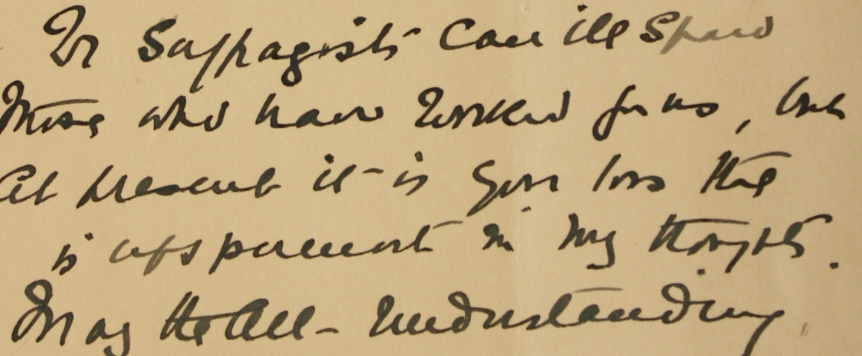 We Suffragists can ill spare
those who have worked for us, but
at present it is your loss that
is uppermost in my thoughts.
May the All-Understanding